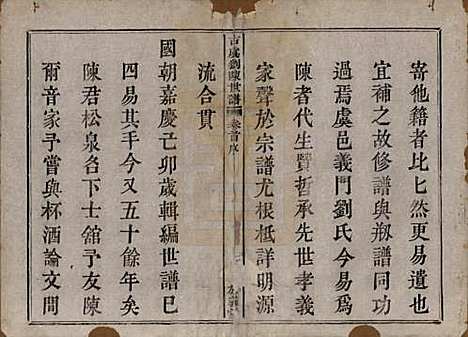 寄他籍者比匕然更易遺也
宜補之故修譜與剏譜同功
過焉虞邑義門劉氏今易爲
陳者代生賢哲承先世孝義
家聲於宗譜尤根柢詳明源
流合貫
古虞劉陳世譜
卷首序
國朝嘉慶己卯歲輯編世譜已
四易其手今又五十餘年矣
陳君松泉各下士舘予友陳
爾音家予嘗與杯酒論文間